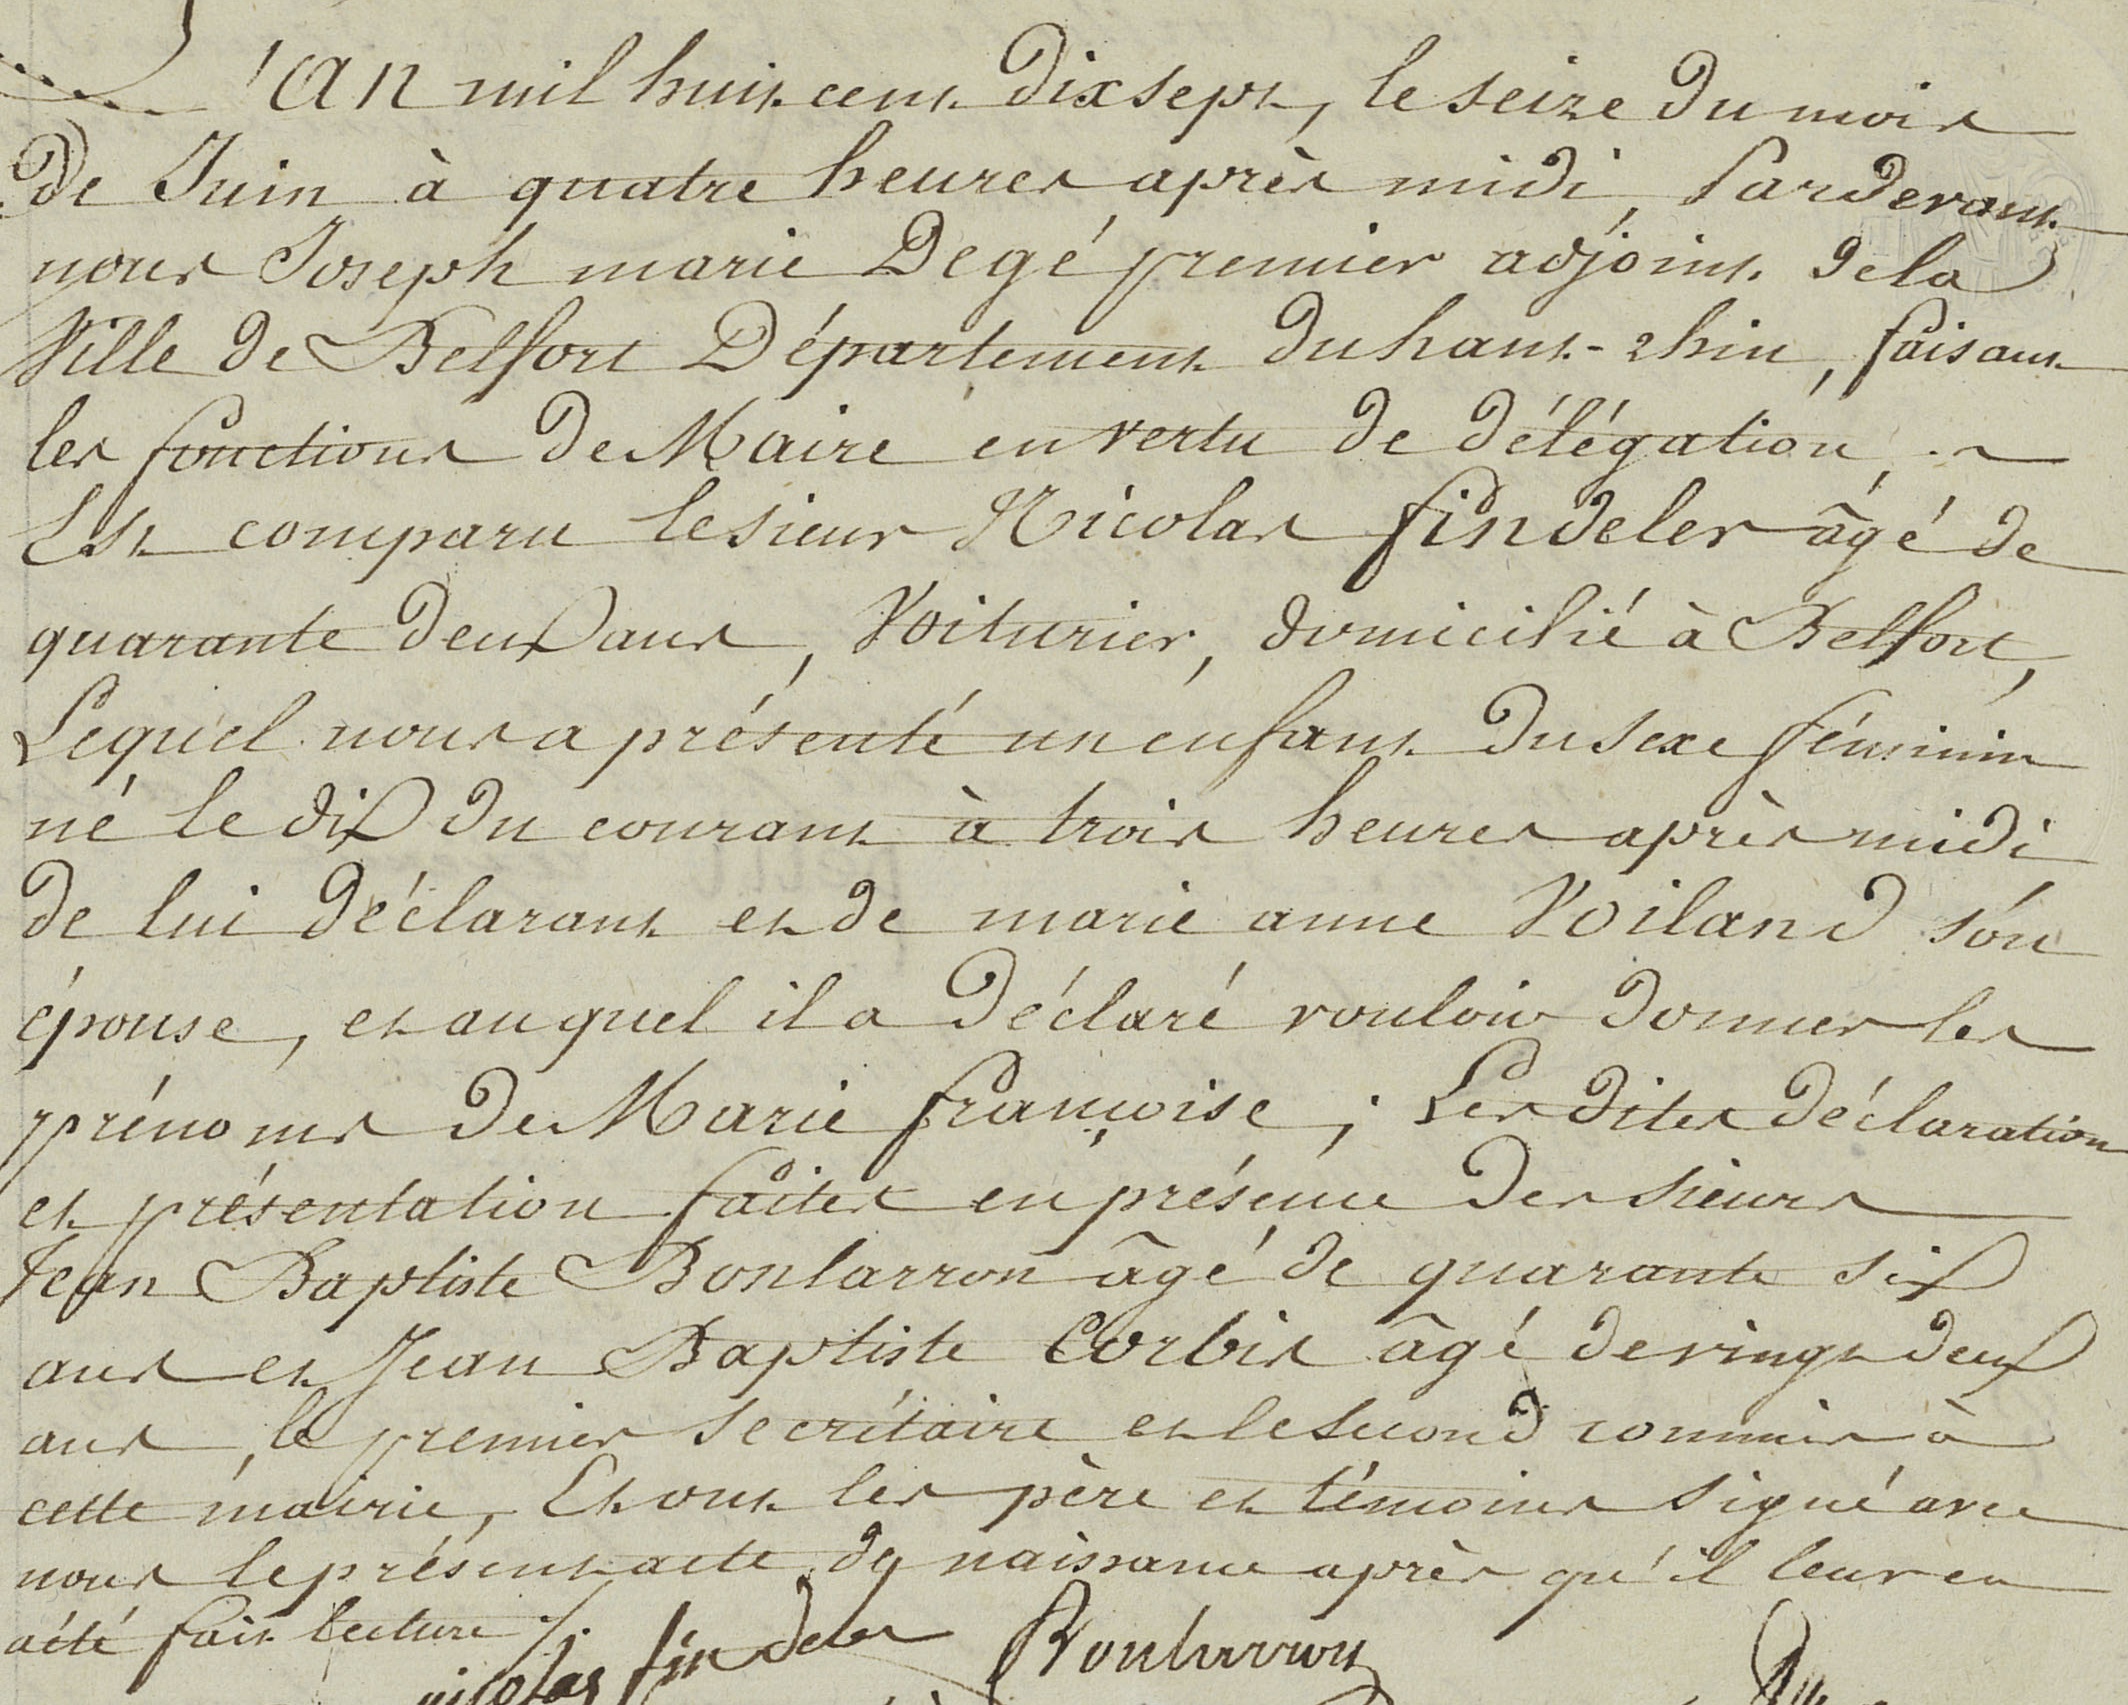 L'an mil huit cent dix sept, le seize du mois
de Juin à quatre heures après midi, Pardevant
nous Joseph marie Degé premier adjoint de la
Ville de Belfort Département du haut-rhin, faisant
les fonctions de Maire en vertu de délégation,
Est comparu le sieur Nicolas findeler âgé de
quarante deux ans, Voiturier, domicilié à Belfort,
Lequel nous a présenté un enfant du sexe féminin
né le dix du courant à trois heures après midi
de lui déclarant et de marie anne Voiland son
épouse, et auquel il a déclaré vouloir donner les
prénoms de Marie françoise; Les dites déclaration
et présentation faites en présence des sieurs
Jean Baptiste Bontarron âgé de quarante six
ans et Jean Baptiste Corbis âgé de vingt deux
ans, le premier secrétaire et le second commis à
cette mairie, Et ont les père et témoins signé avec
nous le présent acte de naissance après qu'il leur en
a été fait lecture ./.
nicolas findeler Bontarron